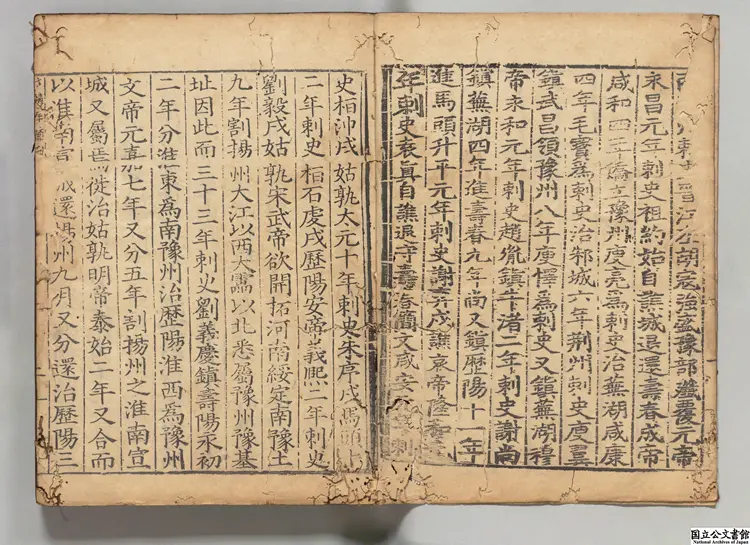 江左胡寇治盛豫部殲覆元帝
永昌元年刺史祖約始自譙城退還壽春成帝
咸和四年僑立豫州庾亮爲刺史治蕪湖咸康
四年毛寶爲刺史治邾城六年荆州刺史庾翼
鎮武昌領豫州八年庾懌爲刺史又鎮蕪湖穆
帝永和元年刺史趙胤鎮牛渚二年刺史謝尚
鎮蕪湖四年進壽春九年尚又鎮歷陽十一年
進馬頭升平元年刺史謝奕戍譙哀帝隆和元
年刺史袁真自譙退守壽春簡文咸安元年刺
史桓沖戍姑孰太元十年刺史朱序戍馬頭十
二年刺史桓石虔戍歷陽安帝義熙二年刺史
劉毅戍姑孰宋武帝欲開拓河南綏定南豫土
九年割揚州大江以西大雷以北悉屬豫州豫基
址因此而三十三年刺史劉義慶鎮壽陽永初
二年分淮東爲南豫州治歷陽淮西爲豫州
文帝元嘉七年又分五年割揚州之淮南宣
城又屬焉徙治姑孰明帝泰始二年又合而
以淮南宣城還揚州九月又分還治歷陽三
国立公文書館
National Archives of Japan